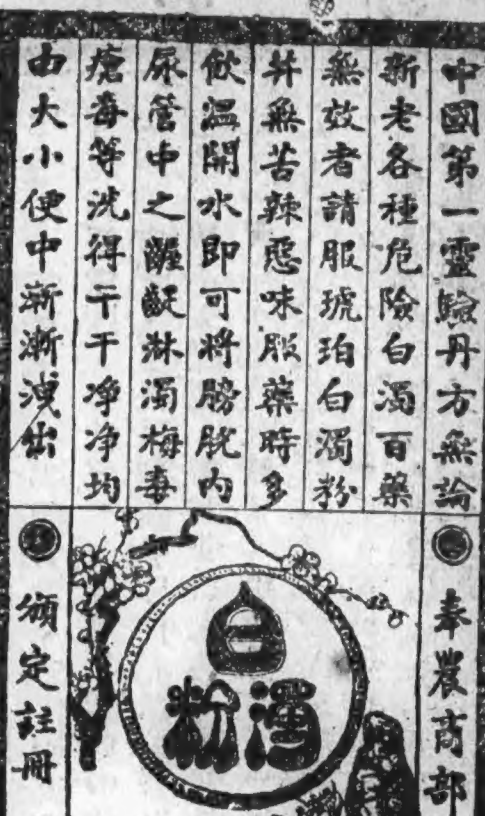 中國第一靈驗丹方無論
新老各種危險白濁百藥
無效者請服琥珀白濁粉
并無苦辣惡味服藥時多
飲溫開水即可將膀胱內
尿管中之齷齪淋濁梅毒
瘡毒等洗得干干凈凈均
由大小便中漸漸洩出
奉農商部
白
濁粉
頒定註冊